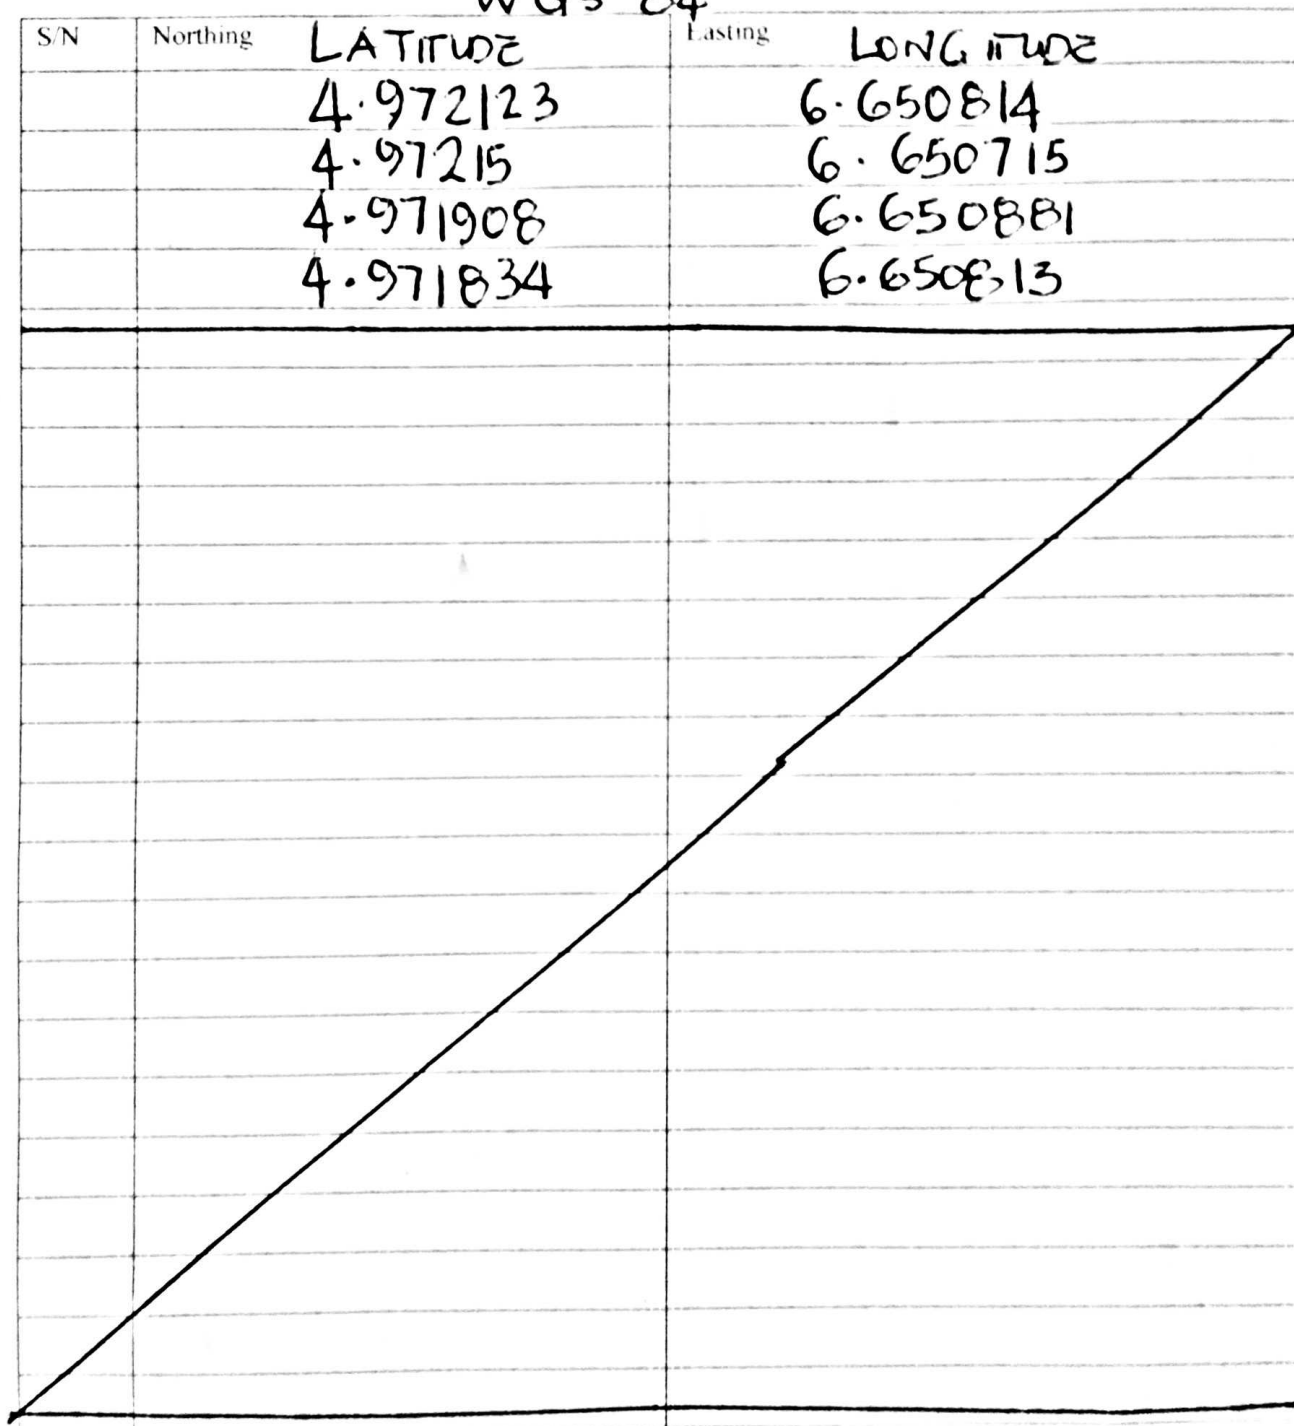 WGS 84
S/N Northing LATITUDE Easting LONGITUDE
4.972123 6.650814
4.97215 6.650715
4.971908 6.650881
4.971834 6.650813